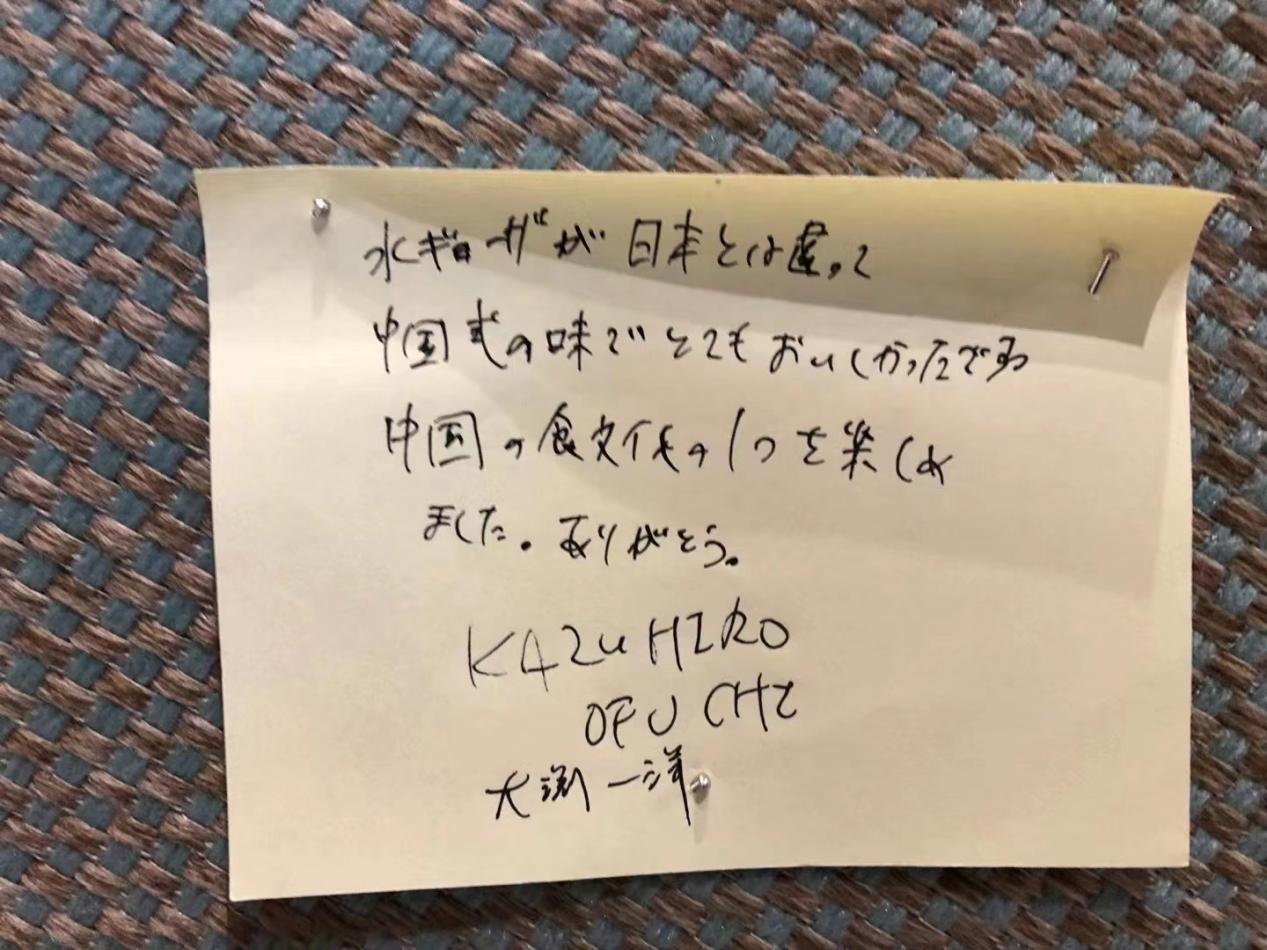 水ギョーザが日本とは違って
中国式の味でとてもおいしかったです
中国の食文化の1つを楽しめ
ました。ありがとう。
KAZUHIRO
OFUCHI
大渕一洋